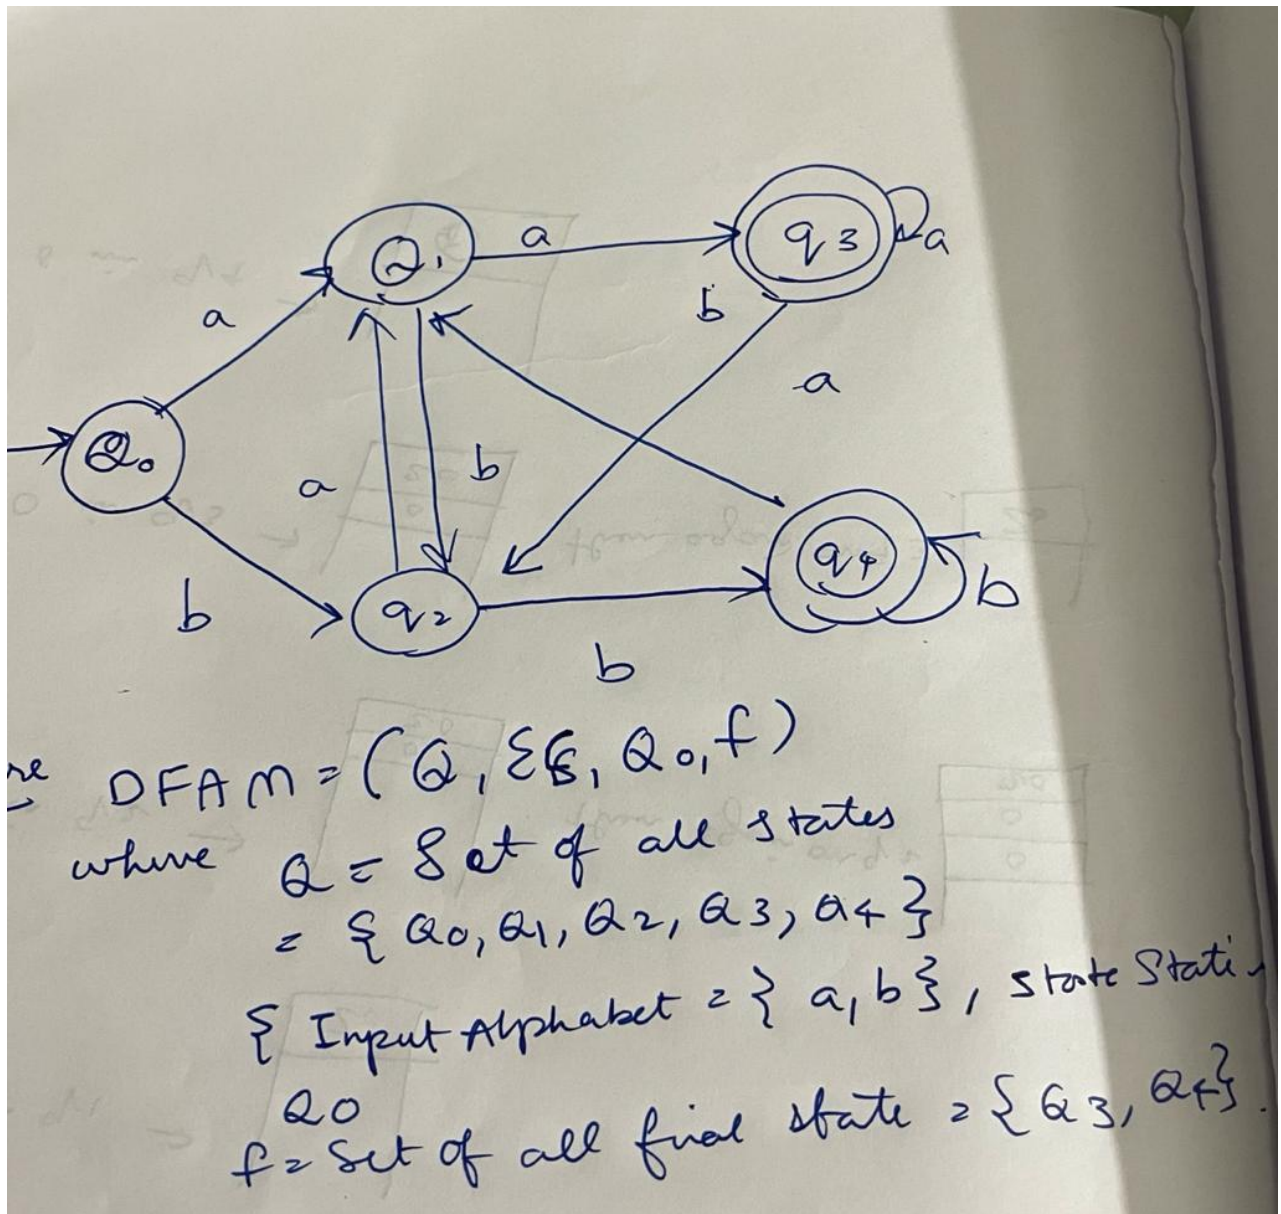 Q1
a
q3
a
a
b
a
Q0
a
b
q4
b
q2
b
b
DFA M = (Q, Σ, δ, Q0, f)
where Q = Set of all states
= { Q0, Q1, Q2, Q3, Q4 }
Σ Input Alphabet = { a, b }, state
Q0
f = Set of all final state = { Q3, Q4 }.